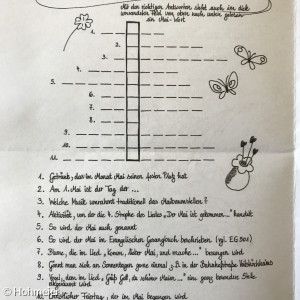 Mit den richtigen Antworten siehst auch im dick
umrandeten Feld von oben nach unten gelesen
ein Mai-Wort
1.
2.
3.
4.
5.
6.
7.
8.
9.
10.
11.
1. Getränk, das im Monat Mai seinen festen Platz hat
2. Am 1. Mai ist der Tag der ...
3. Welche Musik umrahmt traditionell das Maibaumstellen?
4. Aktivität, von der die 4. Strophe des Liedes "Der Mai ist gekommen ..." handelt
5. So wird der Mai auch genannt
6. So wird der Mai im Evangelischen Gesangbuch beschrieben (vgl. EG 501)
7. Blume, die im Lied "Komm, lieber Mai, und mache..." besungen wird
8. Gönnt man sich an Sonnentagen gerne einmal z.B. in der Bahnhofstraße
9. Vogel, dem im Lied "Grüß Gott, du schöner Maien..." ein ganz besondere Stelle
eingeräumt wird
Feiertag, der im Mai begangen wird
© Hohmeier